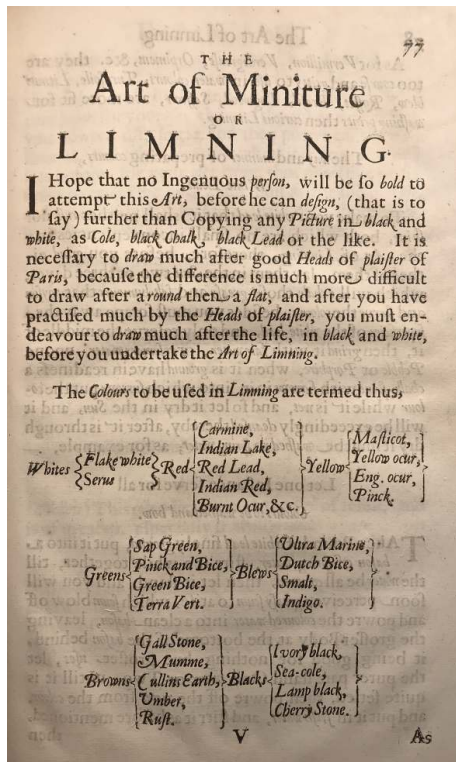 77
THE
Art of Miniture
OR
LIMNING.
I Hope that no Ingenuous person, will be ſo bold to
attempt this Art, before he can deſign, (that is to
ſay) further than Copying any Picture in black and
white, as Cole, black Chalk, black Lead or the like. It is
neceſſary to draw much after good Heads of plaiſter of
Paris, becauſe the difference is much more difficult
to draw after a round then a flat, and after you have
practiſed much by the Heads of plaiſter, you muſt en-
deavour to draw much after the life, in black and white,
before you undertake the Art of Limning.
The Colours to be uſed in Limning are termed thus,
Whites { Flake white } Red { Carmine, } Yellow { Maſticot, }
Serus
Indian Lake,
Red Lead,
Indian Red,
Burnt Ocur, &c.
Yellow ocur,
Eng. ocur,
Pinck.
Greens { Sap Green, } Blews { Vltra Marine, } .
Pinck and Bice,
Green Bice,
Terra Vert.
Dutch Bice,
Smalt,
Indigo.
Browns { Gall Stone, } Blacks { Ivory black, }
Mumme,
Cullins Earth,
Vmber,
Ruſt.
Sea-cole,
Lamp black,
Cherry Stone.
V
As